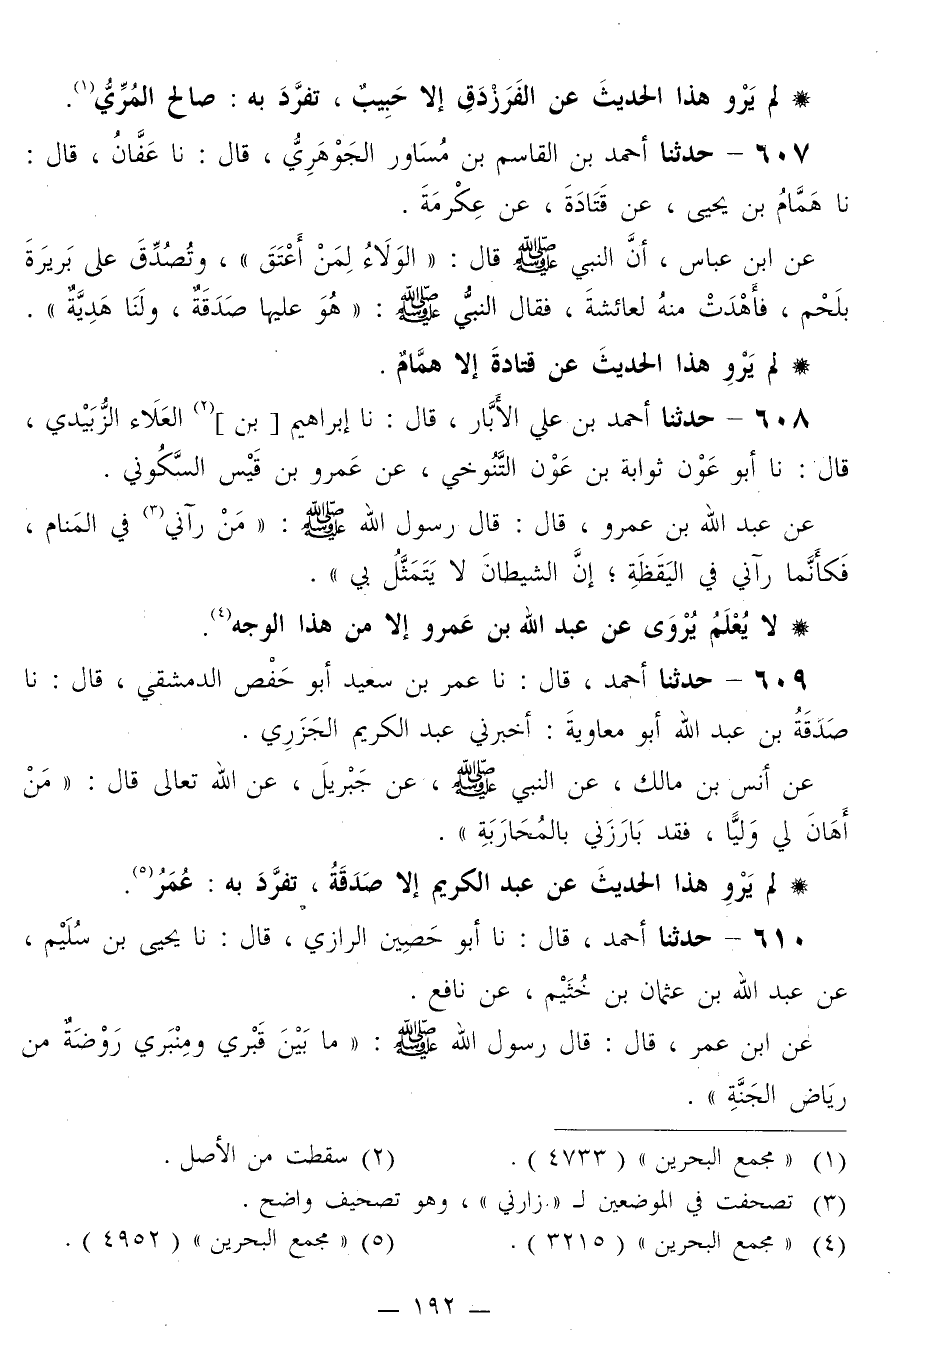 * لم يَرْو هذا الحديثَ عن الفَرَزْدَقِ إلا حَبِيبٌ ، تفرَّدَ به : صالح المُرِّيُّ(١).
٦٠٧ – حدثنا أحمد بن القاسم بن مُسَاور الجَوْهَرِيُّ ، قال : نا عَفَّانُ ، قال :
نا هَمَّامُ بن يحيى ، عن قَتَادَةَ ، عن عِكْرمَةَ .
عن ابن عباس ، أنَّ النبي ﷺ قال : « الوَلَاءُ لِمَنْ أَعْتَقَ » ، وتُصُدِّقَ على بَريرَةَ
بلَحْم ، فأَهْدَتْ منهُ لعائشةَ ، فقال النبيُّ ﷺ : « هُوَ عليها صَدَقَةٌ ، ولَنَا هَدِيَّةٌ » .
* لم يَرْوِ هذا الحديثَ عن قتادةَ إلا همَّامٌ .
٦٠٨ – حدثنا أحمد بن علي الأَبَّار ، قال : نا إبراهيم [ بن ](٢) العَلَاء الزُّبَيْدي ،
قال : نا أبو عَوْن ثوابة بن عَوْن التَّنُوخي ، عن عَمرو بن قَيْس السَّكُوني .
عن عبد الله بن عمرو ، قال : قال رسول الله ﷺ : « مَنْ رآني(٣) في المَنام ،
فَكأَنَّما رآني في اليَقَظَةِ ؛ إنَّ الشيطانَ لا يَتَمَثَّلُ بي » .
* لا يُعْلَمُ يُرْوَى عن عبد الله بن عَمرو إلا من هذا الوجه(٤).
٦٠٩ – حدثنا أحمد ، قال : نا عمر بن سعيد أبو حَفْص الدمشقي ، قال : نا
صَدَقَةُ بن عبد الله أبو معاويةَ : أخبرني عبد الكريم الجَزَرِي .
عن أنس بن مالك ، عن النبي ﷺ ، عن جَبْريلَ ، عن الله تعالى قال : « مَنْ
أَهَانَ لي وَليًّا ، فقد بَارَزَني بالمُحَارَبَةِ » .
* لم يَرْوِ هذا الحديثَ عن عبد الكريم إلا صَدَقَةُ ، تفرَّدَ به : عُمَرُ(٥).
٦١٠ – حدثنا أحمد ، قال : نا أبو حَصِين الرازي ، قال : نا يحيى بن سُلَيْم ،
عن عبد الله بن عثمان بن خُثَيْم ، عن نافع .
عن ابن عمر ، قال : قال رسول الله ﷺ : « ما بَيْنَ قَبْري ومِنْبَري رَوْضَةٌ من
ريَاض الجَنَّةِ » .
(١) « مجمع البحرين » ( ٤٧٣٣ ) . (٢) سقطت من الأصل .
(٣) تصحفت في الموضعين لـ « زارني » ، وهو تصحيف واضح .
(٤) « مجمع البحرين » ( ٣٢١٥ ) . (٥) « مجمع البحرين » ( ٤٩٥٢ ) .
– ١٩٢ –